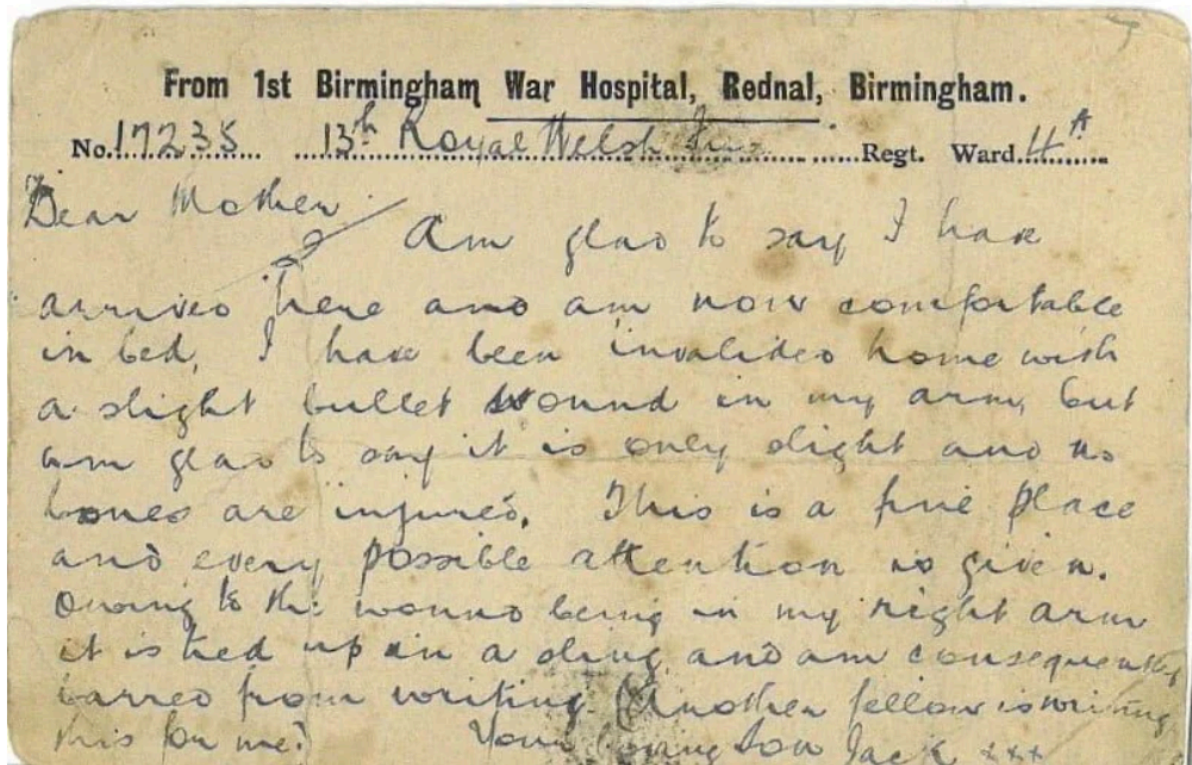 From 1st Birmingham War Hospital, Rednal, Birmingham.
No. 17235 13th Royal Welsh Fus Regt. Ward 4A
Dear Mother
Am glad to say I have
arrived here and am now comfortable
in bed, I have been invalided home with
a slight bullet wound in my arm, but
am glad to say it is only slight and no
bones are injured. This is a fine place
and every possible attention is given.
Owing to the wound being in my right arm
it is tied up in a sling and am consequently
barred from writing. (Another fellow is writing
this for me.) Your loving Son Jack xxx